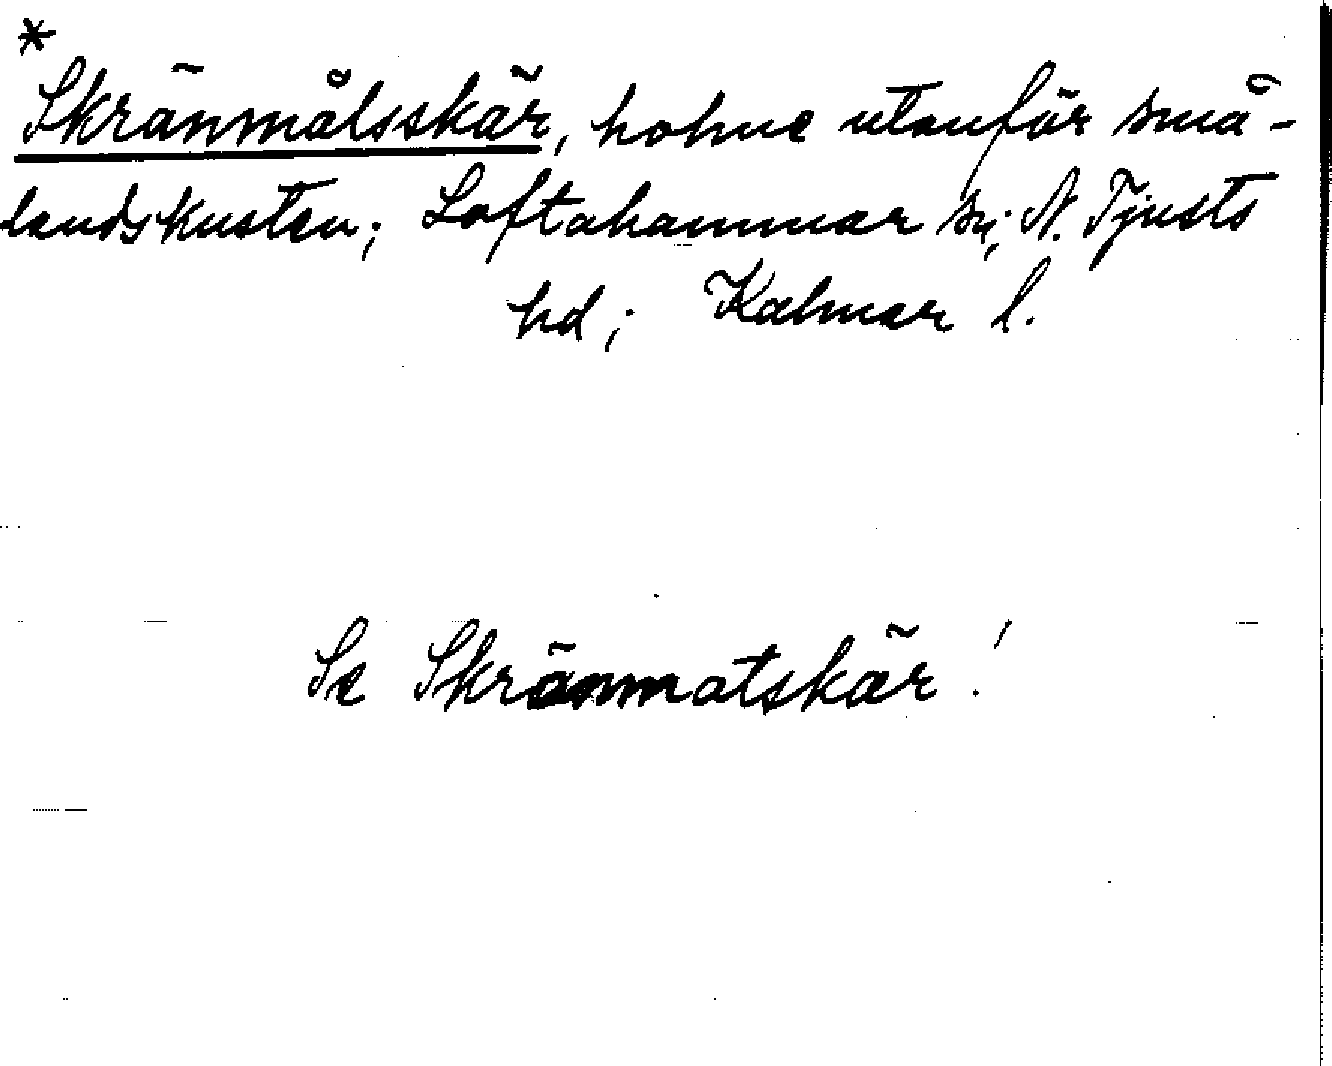 *
Skränmålsskär, holme utanför små-
landskusten; Loftahammar sn; N. Tjusts
hd; Kalmar l.
Se Skränmatskär!